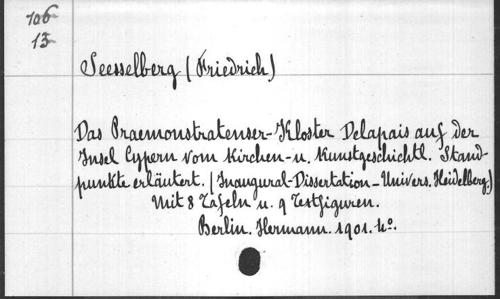 106
13
Seesselberg (Friedrich)
Das Praemonstratenser-Kloster Delapais auf der
Insel Cypern vom Kirchen- u. Kunstgeschichtl. Stand-
punkte erläutert. (Inaugural-Dissertation - Univers. Heidelberg.)
Mit 8 Tafeln u. 9 Textfiguren.
Berlin. Hermann. 1901. 4o.